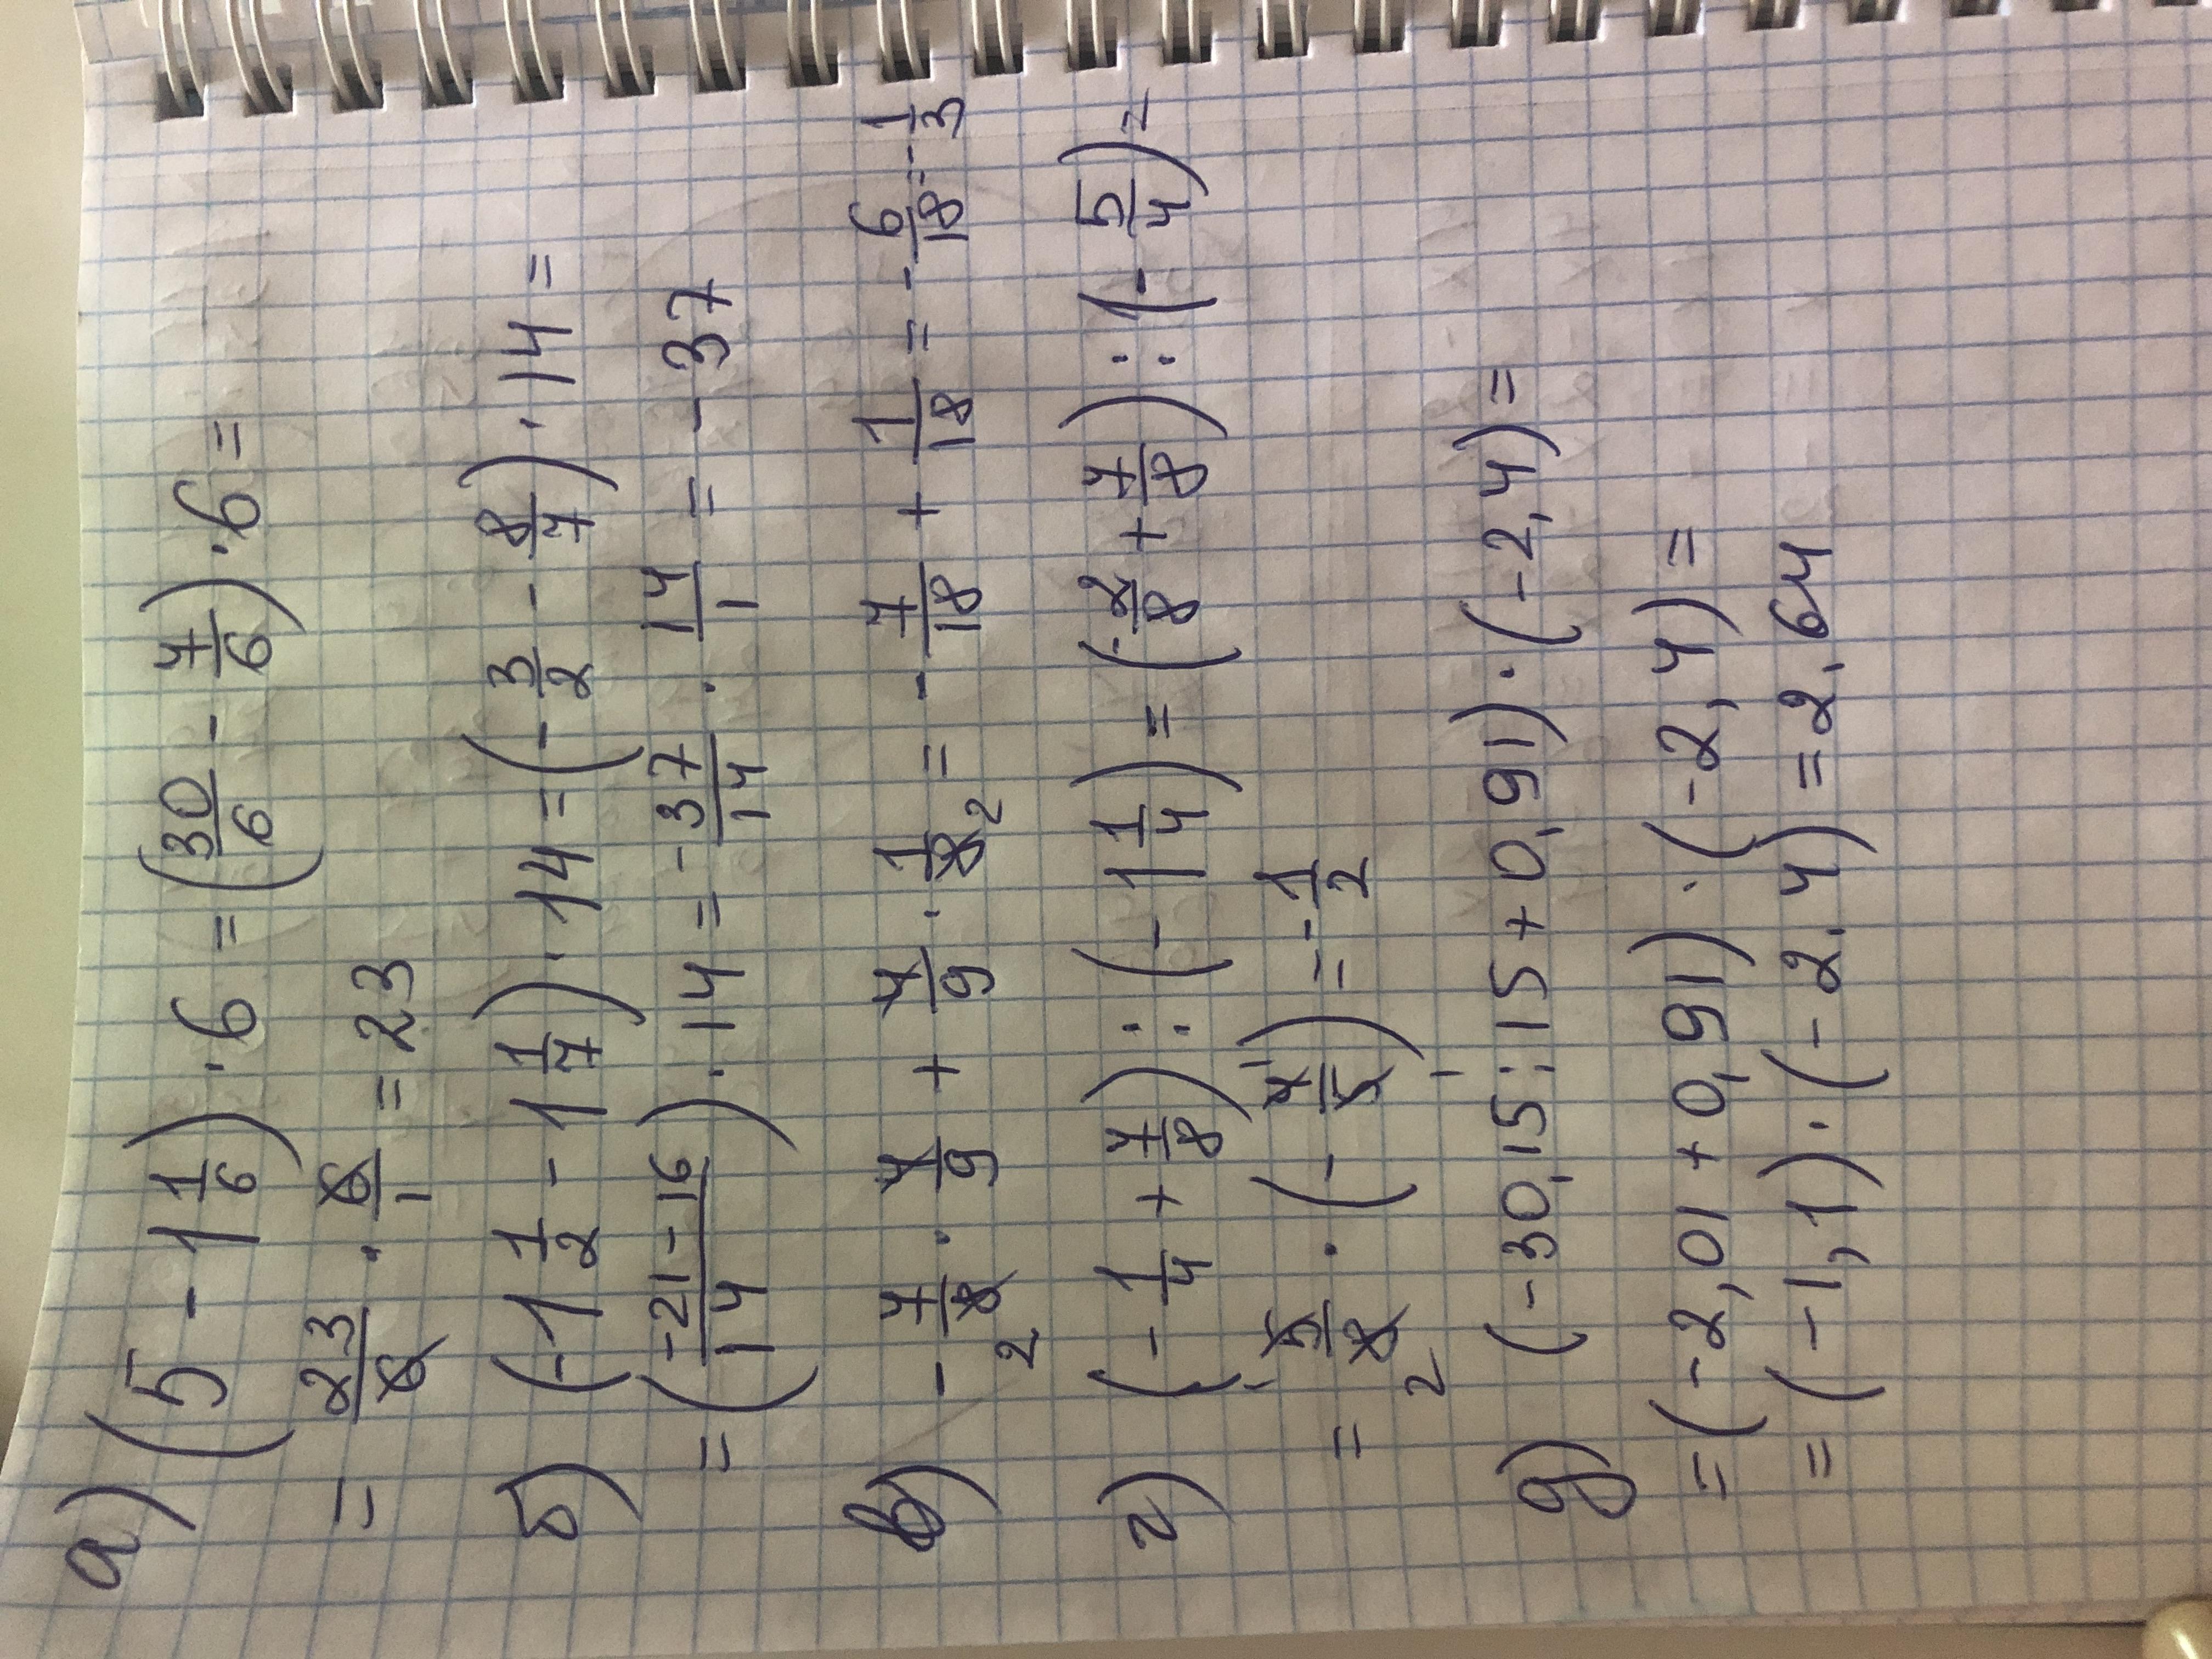 а) (5 - 1 1/6) · 6 = (30/6 - 7/6) · 6 =
= 23/6 · 6/1 = 23
б) (-1 1/2 - 1 1/7) · 14 = (-3/2 - 8/7) · 14 =
= (-21-16/14) · 14 = -37/14 · 14/1 = -37
в) -7/8 · 4/9 + 4/9 · 1/8 = -7/18 + 1/18 = -6/18 = -1/3
2 2
г) (-1/4 + 7/8) : (-1 1/4) = (-2/8 + 7/8) : (-5/4) =
= 5/8 · (-4/5) = -1/2
д) (-30,15 : 15 + 0,91) · (-2,4) =
= (-2,01 + 0,91) · (-2,4) =
= (-1,1) · (-2,4) = 2,64